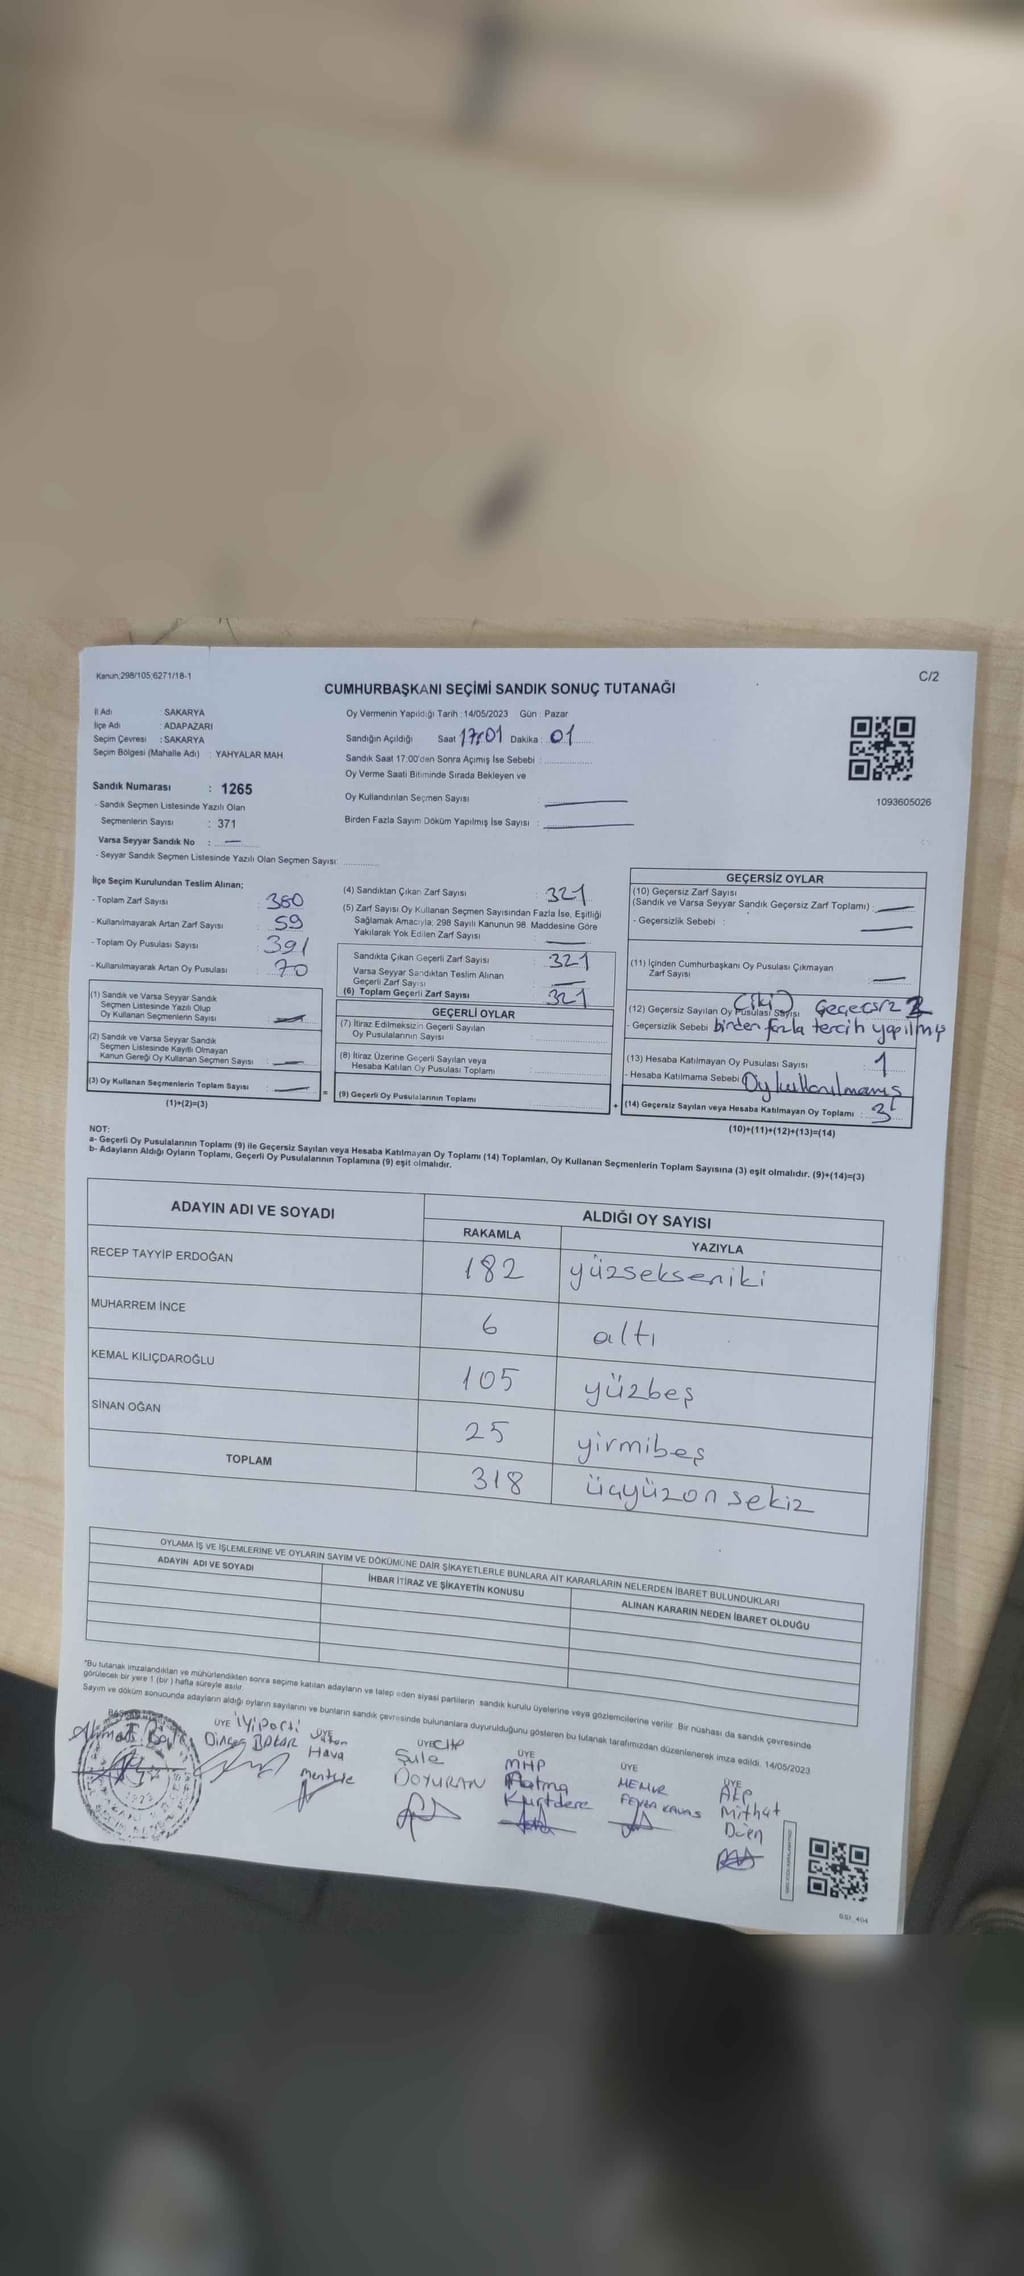 Kanun;298/105;6271/18-1
C/2
CUMHURBAŞKANI SEÇİMİ SANDIK SONUÇ TUTANAĞI
İl Adı : SAKARYA
İlçe Adı : ADAPAZARI
Seçim Çevresi : SAKARYA
Seçim Bölgesi (Mahalle Adı) : YAHYALAR MAH
Sandık Numarası : 1265
- Sandık Seçmen Listesinde Yazılı Olan
Seçmenlerin Sayısı : 371
Varsa Seyyar Sandık No : —
- Seyyar Sandık Seçmen Listesinde Yazılı Olan Seçmen Sayısı:
Oy Vermenin Yapıldığı Tarih : 14/05/2023 Gün : Pazar
Sandığın Açıldığı Saat 17:01 Dakika : 01
Sandık Saat 17:00'den Sonra Açımış İse Sebebi :
Oy Verme Saati Bitiminde Sırada Bekleyen ve
Oy Kullandırılan Seçmen Sayısı :
Birden Fazla Sayım Döküm Yapılmış İse Sayısı :
1093605026
İlçe Seçim Kurulundan Teslim Alınan;
- Toplam Zarf Sayısı : 380
- Kullanılmayarak Artan Zarf Sayısı : 59
- Toplam Oy Pusulası Sayısı : 391
- Kullanılmayarak Artan Oy Pusulası : 70
(1) Sandık ve Varsa Seyyar Sandık
Seçmen Listesinde Yazılı Olup
Oy Kullanan Seçmenlerin Sayısı : —
(2) Sandık ve Varsa Seyyar Sandık
Seçmen Listesinde Kayıtlı Olmayan
Kanun Gereği Oy Kullanan Seçmen Sayısı : —
(3) Oy Kullanan Seçmenlerin Toplam Sayısı : —
(1)+(2)=(3)
(4) Sandıktan Çıkan Zarf Sayısı : 321
(5) Zarf Sayısı Oy Kullanan Seçmen Sayısından Fazla İse, Eşitliği
Sağlamak Amacıyla; 298 Sayılı Kanunun 98. Maddesine Göre
Yakılarak Yok Edilen Zarf Sayısı : —
Sandıkta Çıkan Geçerli Zarf Sayısı : 321
Varsa Seyyar Sandıktan Teslim Alınan
Geçerli Zarf Sayısı : —
(6) Toplam Geçerli Zarf Sayısı 321
GEÇERLİ OYLAR
(7) İtiraz Edilmeksizin Geçerli Sayılan
Oy Pusulalarının Sayısı :
(8) İtiraz Üzerine Geçerli Sayılan veya
Hesaba Katılan Oy Pusulası Toplamı :
= (9) Geçerli Oy Pusulalarının Toplamı
GEÇERSİZ OYLAR
(10) Geçersiz Zarf Sayısı
(Sandık ve Varsa Seyyar Sandık Geçersiz Zarf Toplamı) : —
- Geçersizlik Sebebi : —
(11) İçinden Cumhurbaşkanı Oy Pusulası Çıkmayan
Zarf Sayısı : —
(12) Geçersiz Sayılan Oy Pusulası Sayısı (iki) Geçersiz 2
- Geçersizlik Sebebi birden fazla tercih yapılmış
(13) Hesaba Katılmayan Oy Pusulası Sayısı : 1
- Hesaba Katılmama Sebebi Oy kullanılmamış
+ (14) Geçersiz Sayılan veya Hesaba Katılmayan Oy Toplamı : 3
(10)+(11)+(12)+(13)=(14)
NOT:
a- Geçerli Oy Pusulalarının Toplamı (9) ile Geçersiz Sayılan veya Hesaba Katılmayan Oy Toplamı (14) Toplamları, Oy Kullanan Seçmenlerin Toplam Sayısına (3) eşit olmalıdır. (9)+(14)=(3)
b- Adayların Aldığı Oyların Toplamı, Geçerli Oy Pusulalarının Toplamına (9) eşit olmalıdır.
ADAYIN ADI VE SOYADI
ALDIĞI OY SAYISI
RAKAMLA YAZIYLA
RECEP TAYYİP ERDOĞAN 182 yüzsekseniki
MUHARREM İNCE 6 altı
KEMAL KILIÇDAROĞLU 105 yüzbeş
SİNAN OĞAN 25 yirmibeş
TOPLAM 318 üçyüzonsekiz
OYLAMA İŞ VE İŞLEMLERİNE VE OYLARIN SAYIM VE DÖKÜMÜNE DAİR ŞİKAYETLERLE BUNLARA AİT KARARLARIN NELERDEN İBARET BULUNDUKLARI
ADAYIN ADI VE SOYADI İHBAR İTİRAZ VE ŞİKAYETİN KONUSU ALINAN KARARIN NEDEN İBARET OLDUĞU
"Bu tutanak imzalandıktan ve mühürlendikten sonra seçime katılan adayların ve talep eden siyasi partilerin sandık kurulu üyelerine veya gözlemcilerine verilir. Bir nüshası da sandık çevresinde
görülecek bir yere 1 (bir) hafta süreyle asılır.
Sayım ve döküm sonucunda adayların aldığı oyların sayılarını ve bunların sandık çevresinde bulunanlara duyurulduğunu gösteren bu tutanak tarafımızdan düzenlenerek imza edildi. 14/05/2023
ÜYE iyi parti
ÜYE
Hava
Menteşe
ÜYE CHP
Şule
DOYURAN
ÜYE
MHP
Fatma
Kurtdere
ÜYE
MEMUR
ÜYE
AKP
Mithat